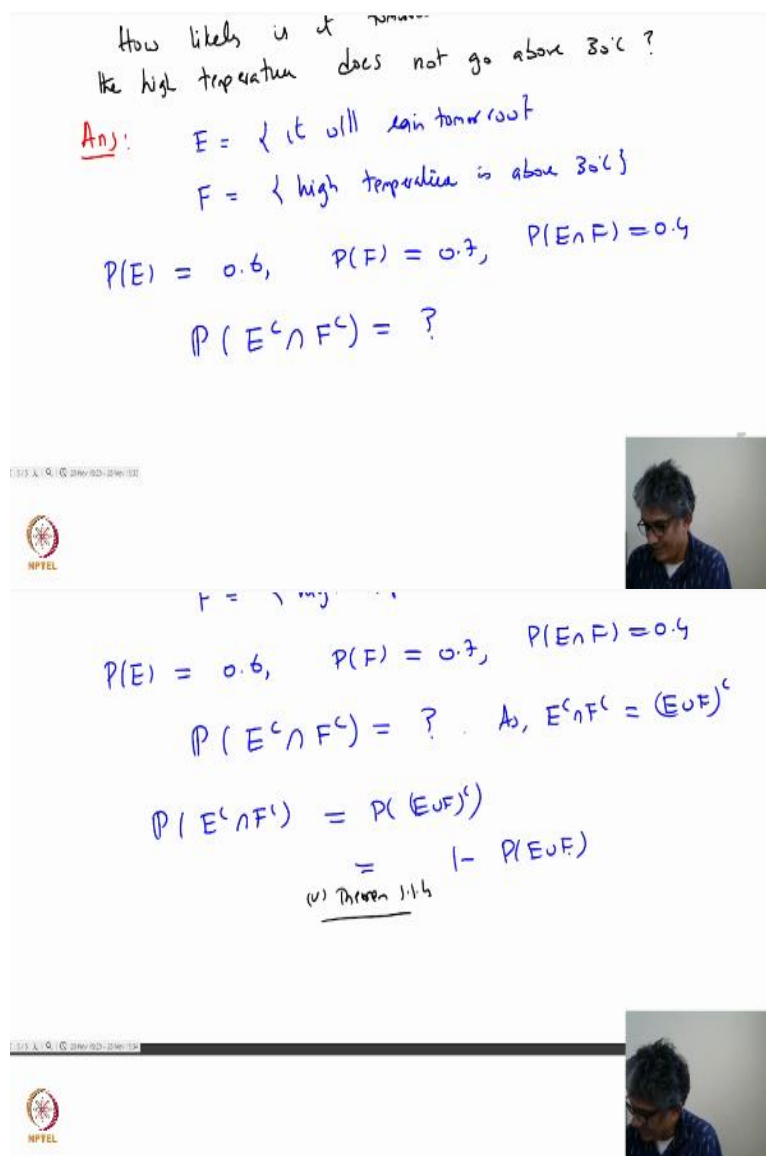 How likely is it
the high temperature does not go above 30°C ?
Ans: E = { it will rain tomorrow }
F = { high temperature is above 30°C }
P(E) = 0.6, P(F) = 0.7, P(E∩F) = 0.4
ℙ(Eᶜ∩Fᶜ) = ?
NPTEL
F = {
P(E) = 0.6, P(F) = 0.7, P(E∩F) = 0.4
ℙ(Eᶜ∩Fᶜ) = ? . As, Eᶜ∩Fᶜ = (E∪F)ᶜ
ℙ(Eᶜ∩Fᶜ) = P((E∪F)ᶜ)
= 1- P(E∪F)
(v) Theorem 1.1.4
NPTEL